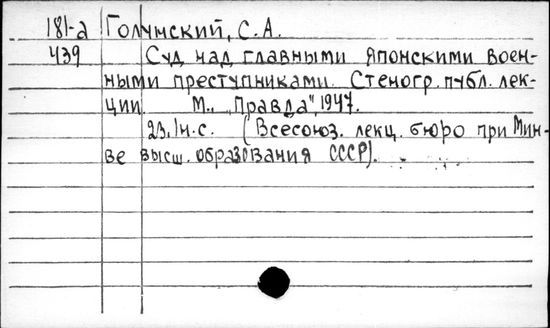 181-а Голунский, С.А.
439 Суд над главными японскими воен-
ными преступниками. Стеногр. публ. лек-
ции. М., „Правда", 1947.
23.1н.с. (Всесоюз. лекц. бюро при Мин-
ве высш. образования СССР).